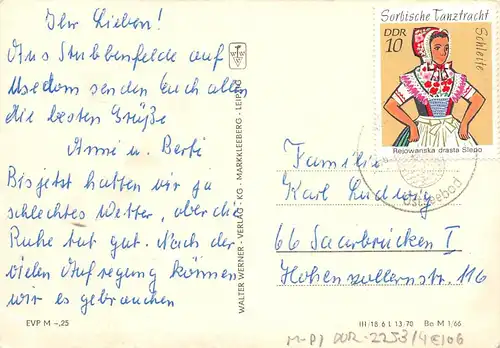 Ihr Lieben!
Aus Stubbenfelde auf
Usedom senden Euch allen
die besten Grüße
Anni u. Berti
Bis jetzt hatten wir ja
schlechtes Wetter, aber die
Ruhe tut gut. Nach der
vielen Aufregung können
wir es gebrauchen
EVP M –,25
WALTER WERNER - VERLAG - KG - MARKKLEEBERG - LEIPZIG
Sorbische Tanztracht
DDR
10
Schleife
Rejowanska drasta Slepo
Ostseebad
Familie
Karl Ludwig
66 Saarbrücken I
Hohenzollernstr. 116
III/18/6 L 13/70 Be M 1/66
M-P1 DDR-2253/4E106